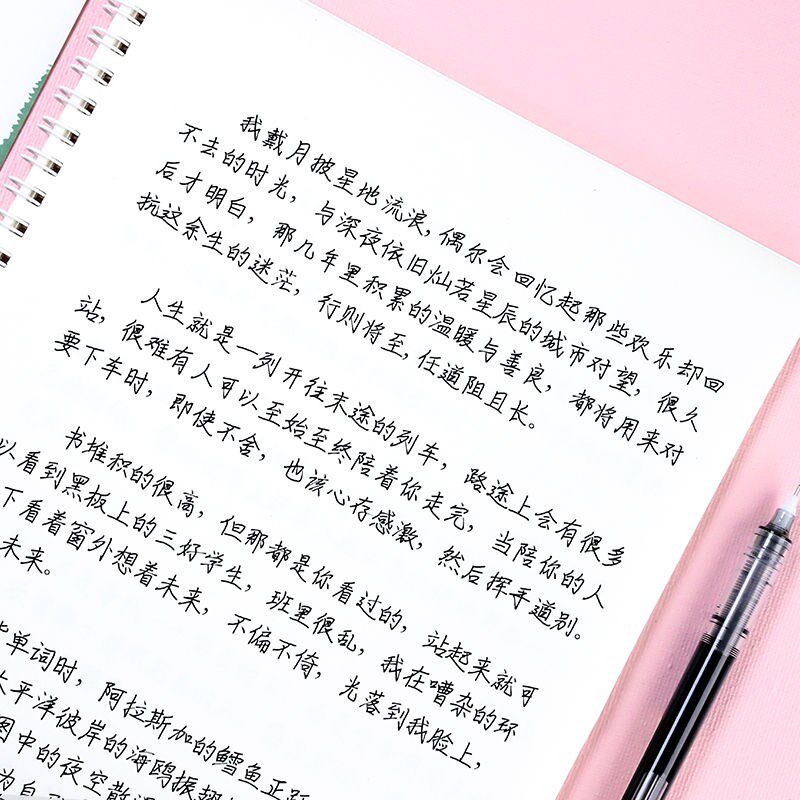 我戴月披星地流浪,偶尔会回忆起那些欢乐却回
不去的时光，与深夜依旧灿若星辰的城市对望，很久
后才明白，那几年里积累的温暖与善良，都将用来对
抗这余生的迷茫，行则将至,任道阻且长。
人生就是一列开往末途的列车，路途上会有很多
站，很难有人可以至始至终陪着你走完，当陪你的人
要下车时，即使不舍，也该心存感激，然后挥手道别。
书堆积的很高，但那都是你看过的，站起来就可
以看到黑板上的三好学生，班里很乱，我在嘈杂的环
下看着窗外想着未来，不偏不倚，光落到我脸上，
未来。
单词时，阿拉斯加的鳕鱼正跃
太平洋彼岸的海鸥振翅
图中的夜空散